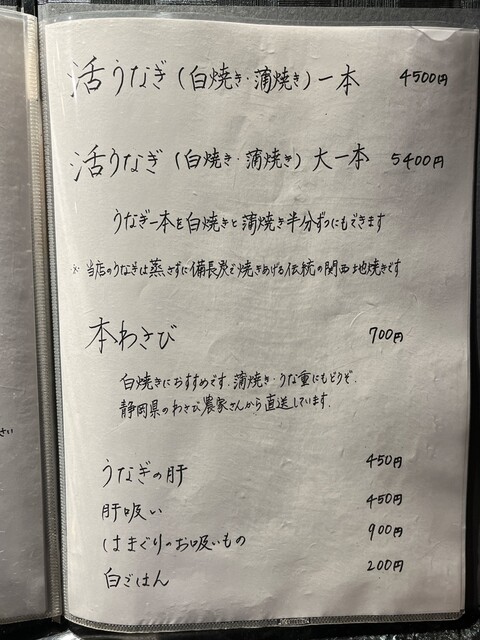 活うなぎ(白焼き・蒲焼き)一本 4500円
活うなぎ(白焼き・蒲焼き)大一本 5400円
うなぎ一本を白焼きと蒲焼き半分ずつにもできます
※ 当店のうなぎは蒸さずに備長炭で焼きあげる伝統の関西地焼きです
本わさび 700円
白焼きにおすすめです。蒲焼き・うな重にもどうぞ。
静岡県のわさび農家さんから直送しています。
うなぎの肝 450円
肝吸い 450円
はまぐりのお吸いもの 900円
白ごはん 200円
さい